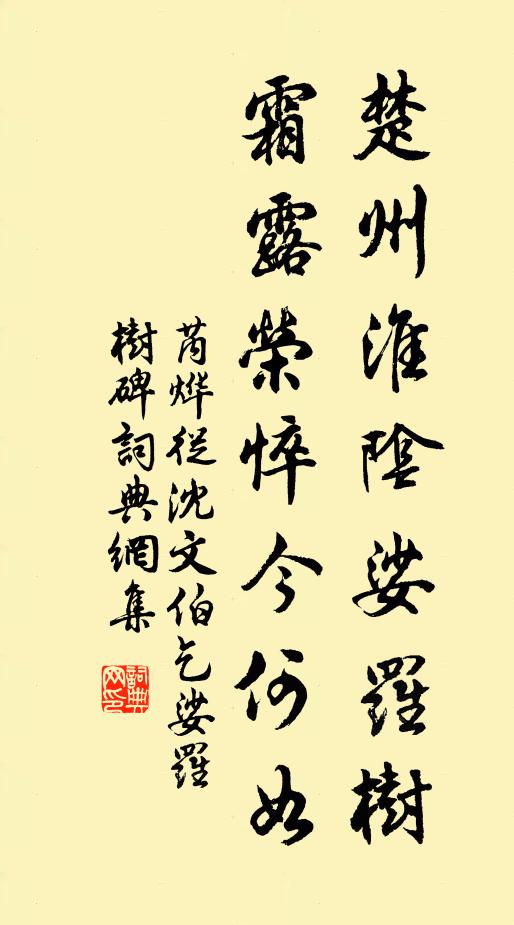 楚州淮陰娑羅樹
霜露榮悴今何如
芮烨從沈文伯乞娑羅
樹碑詞典網集
詞典
网印